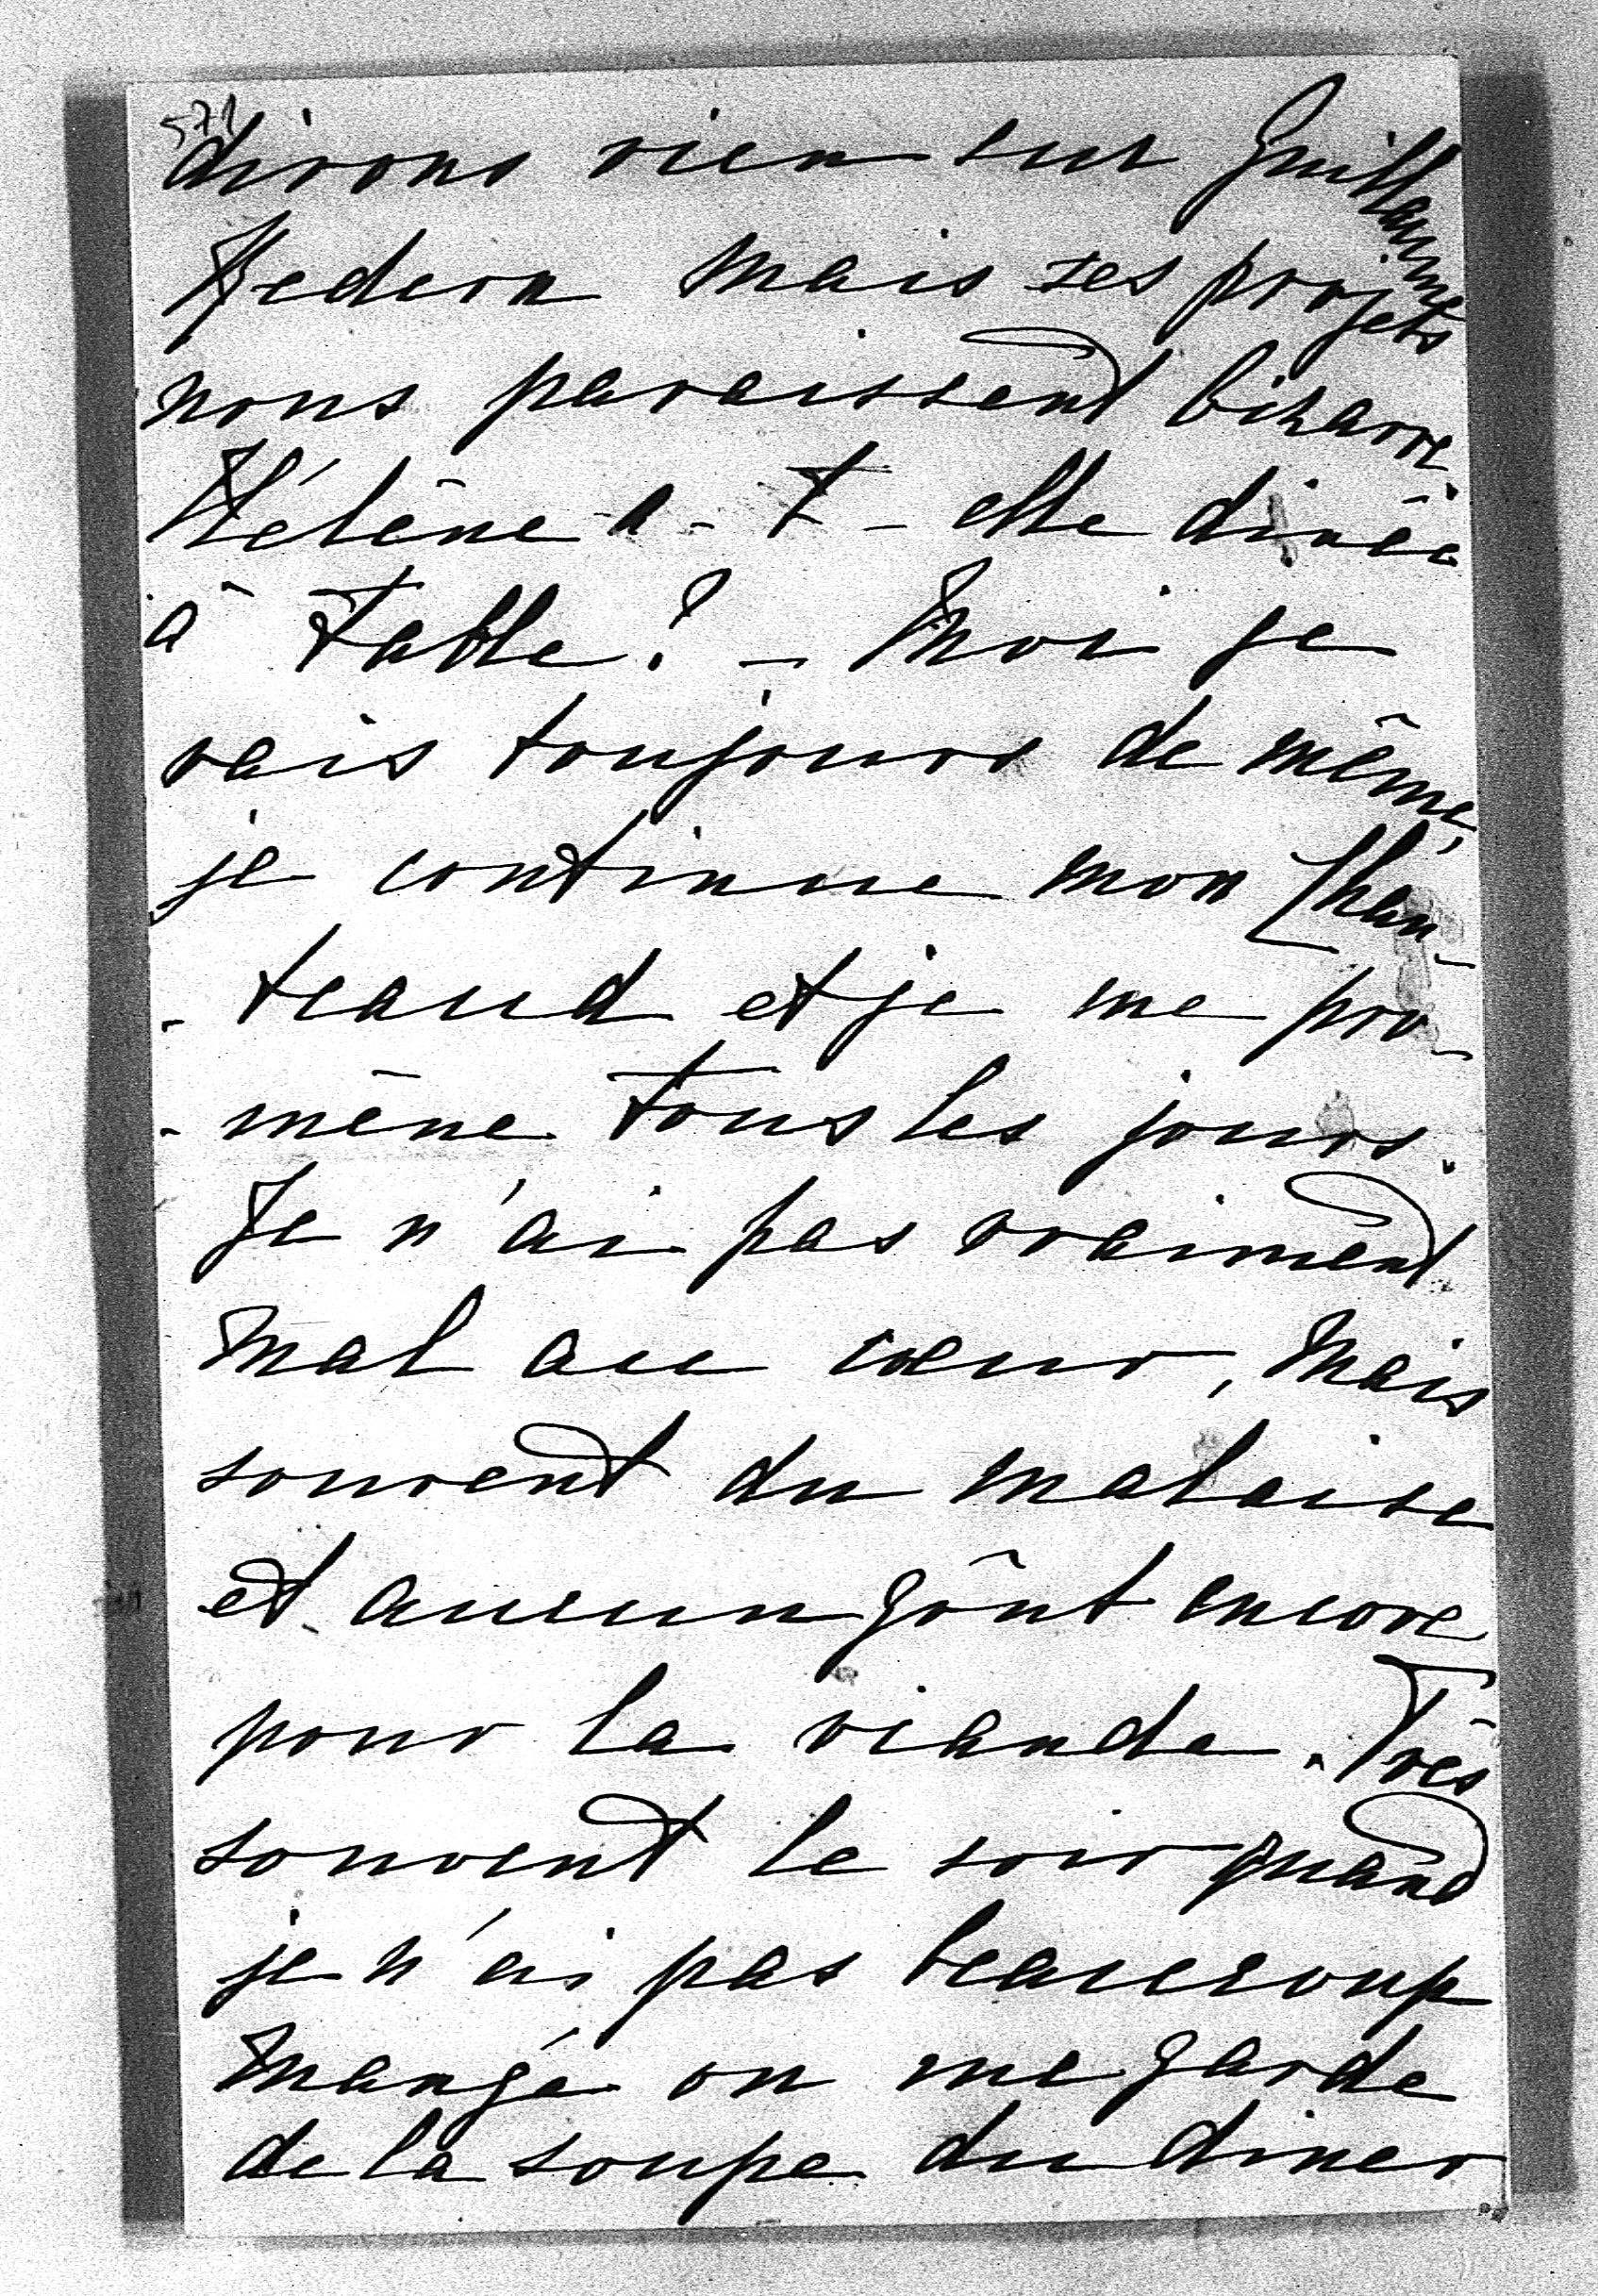 571
dirons rien sur Guillaume
Hedern mais ses projets
nous paraissent bizarre
Hélène a-t-elle dinée
à table? - Moi je
vais toujours de même,
je continue mon Chan-
-teaud et je me pro-
-mène tous les jours.
Je n'ai pas vraiment
mal au cœur, mais
souvent du malaise
et aucun goût encore
pour la viande. Très
souvent le soir quand
je n'ai pas beaucoup
mangé on me garde
de la soupe du diner